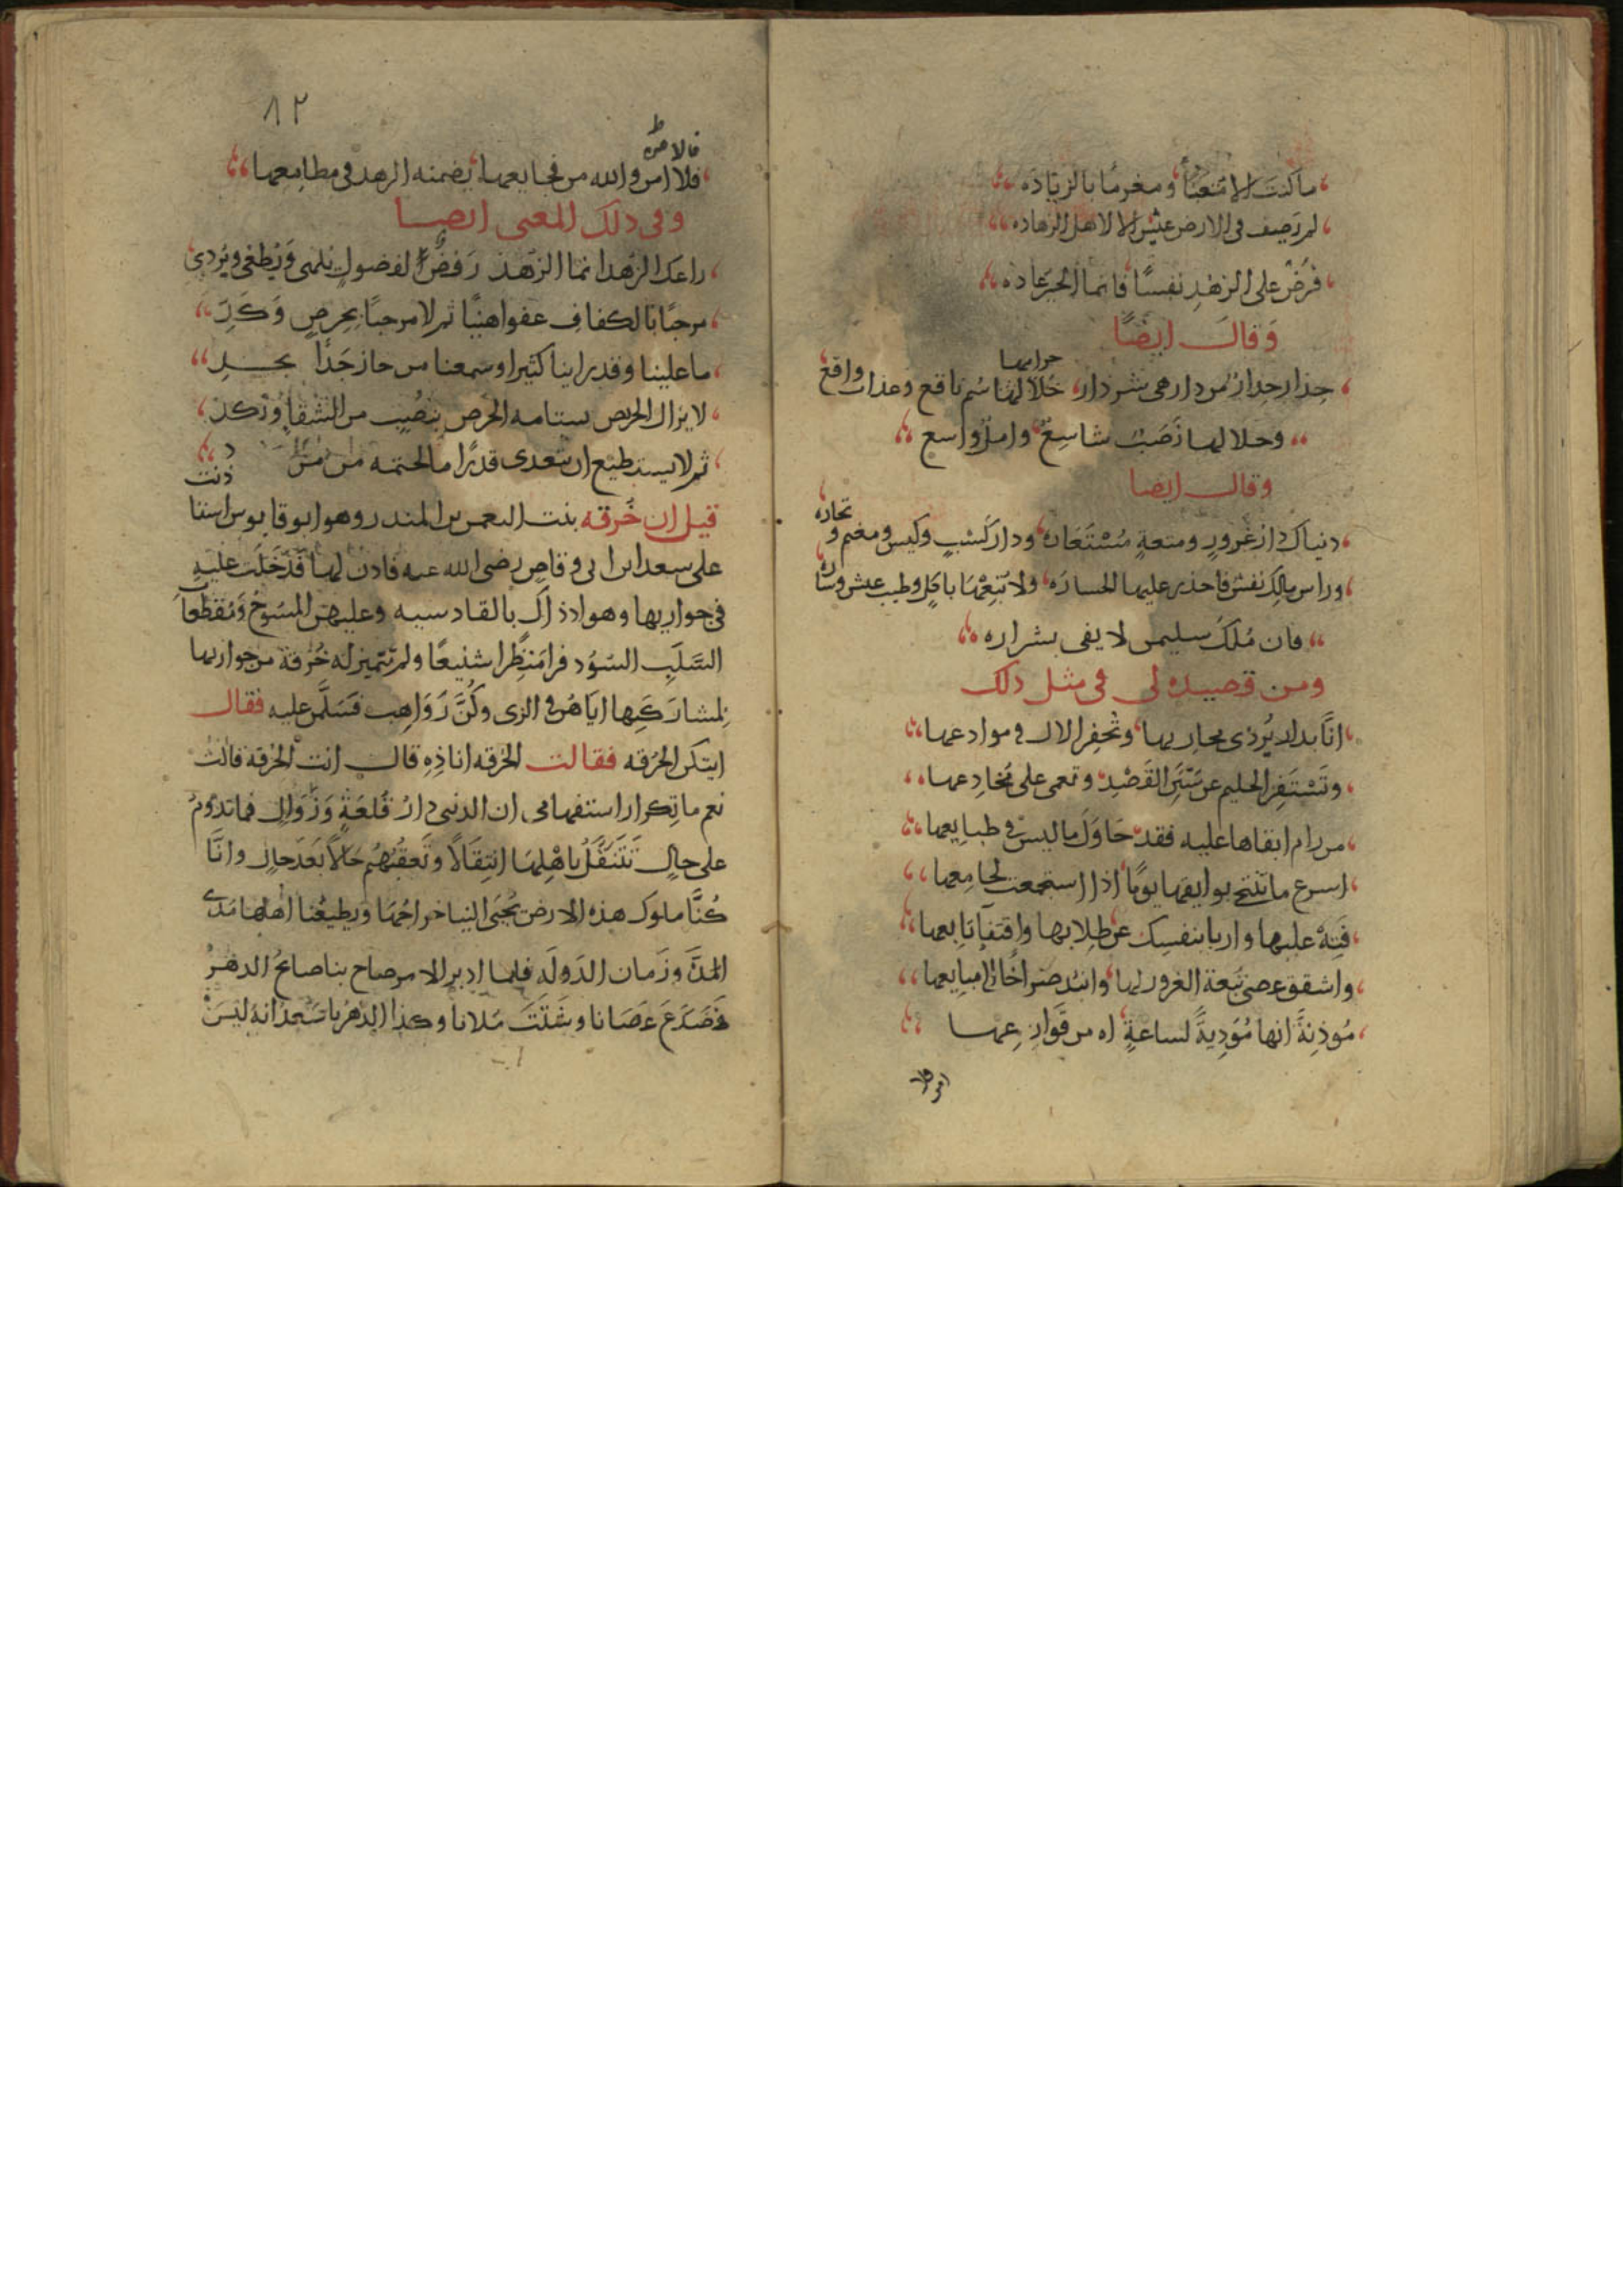 ما كنت الا متعبا ومغرما بالزياده
لم يصف في الارض عيش الا لاهل الزهاده
فرض على الزهد نفسا فانما الخير عاده
وقال ايضا
حذار حذار من دار هي شر دار حلالها سم ناقع وعذاب واقع
حرامها
وحلالها نصب شاسع وامل واسع
وقال ايضا
دنياك دار غرور ومتعة مستعاره ودار كسب وكيس ومغنم وتجاره
وراس مالك نفس فاحذر عليها الخساره ولا تبعها باكل وطيب عيش وشاره
فان ملك سليمن لا يفي بشراره
ومن قصيده لي في مثل ذلك
انا بدار يردى محاربها وتخفر الال في موادعها
وتستفز الحليم عن سنن القصد وتعمى على مخادعها
من رام ابقاها عليه فقد حاول ما ليس في طبايعها
اسرع ما تنتحي بوايقها يوما اذا استجمعت لجامعها
فته عليها واربا بنفسك عن طلابها واقتفا تابعها
واشقق عصى تبعة الغرور لها وانبذ صراخا الى مبايعها
موذنة انها مودية لساعة اه من قوارعها
فلا امن
٨٢
فلا امن والله من فجايعها يضمنه الزهد في مطامعها
وفي ذلك المعنى ايضا
راعك الزهد انما الزهد رفض لفضول تلهي وتطغي ويردي
مرحبا بالكفاف عفوا هنيا ثم لا مرحبا بحرص وكد
ما علينا وقد راينا كثيرا وسمعنا من حاز جدا بجد
لا يزال الحريص يستامه الحرص بنصيب من الشقا ونكد
ثم لا يستطيع ان يتعدى قدرا ما لحتمه من مرد
قيل ان خرقه بنت النعمن بن المنذر وهو ابو قابوس استاذنت
على سعد ابن ابي وقاص رضي الله عنه فاذن لها فدخلت عليه
في جواريها وهو اذ ذاك بالقادسيه وعليهن المسوح ومقطعات
السلب السود فرا منظرا شنيعا ولم تتميز له خرقة من جواريها
لمشاركتها اياهن في الزي وكن رواهب فسلمن عليه فقال
ايتكن الخرقه فقالت الخرقه انا ذه قال انت الخرقة قالت
نعم ما تكرار استفهامي ان الدنيى دار قلعة وزوال فما تدوم
على حال تتنقل باهلها انتقالا وتعقبهم حالا بعد حال وانا
كنا ملوك هذه الارض يجبى الينا خراجها ويطيعنا اهلها مدى
المدة وزمان الدوله فلما ادبر الامر صاح بنا صائح الدهر
فصدع عصانا وشتت ملانا وكذا الدهر يا سعد انه ليس